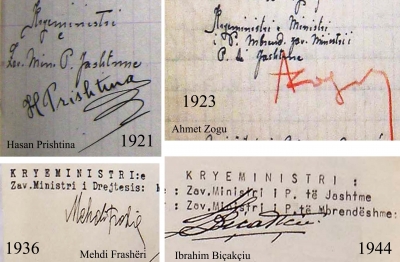 Kryeministri
e
Zev. Min. P. Jashtme
H Prishtina
Hasan Prishtina
1921
Kryeministri e Ministri
i P. Mbrend. Zev. Ministri i
P. të Jashtme
AZogu
1923
Ahmet Zogu
KRYEMINISTRI:e
Zav.Ministri i Drejtesis:
Mehdi Frashëri
1936
Mehdi Frashëri
KRYEMINISTRI:
: Zav.Ministri i P. të Jashtme
: Zav.Ministri i P.të Mbrendëshme:
Biçakçiu
Ibrahim Biçakçiu
1944